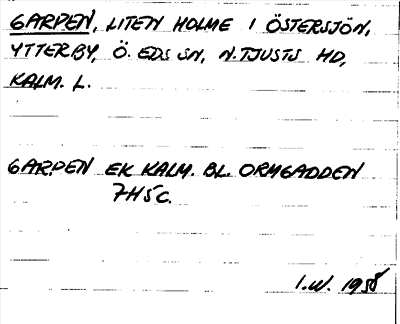 GARPEN, LITEN HOLME I ÖSTERSJÖN,
YTTERBY, Ö. EDS SN, N. TJUSTS HD,
KALM. L.
GARPEN EK KALM. BL. ORMGADDEN
7H5C.
I.W. 1958